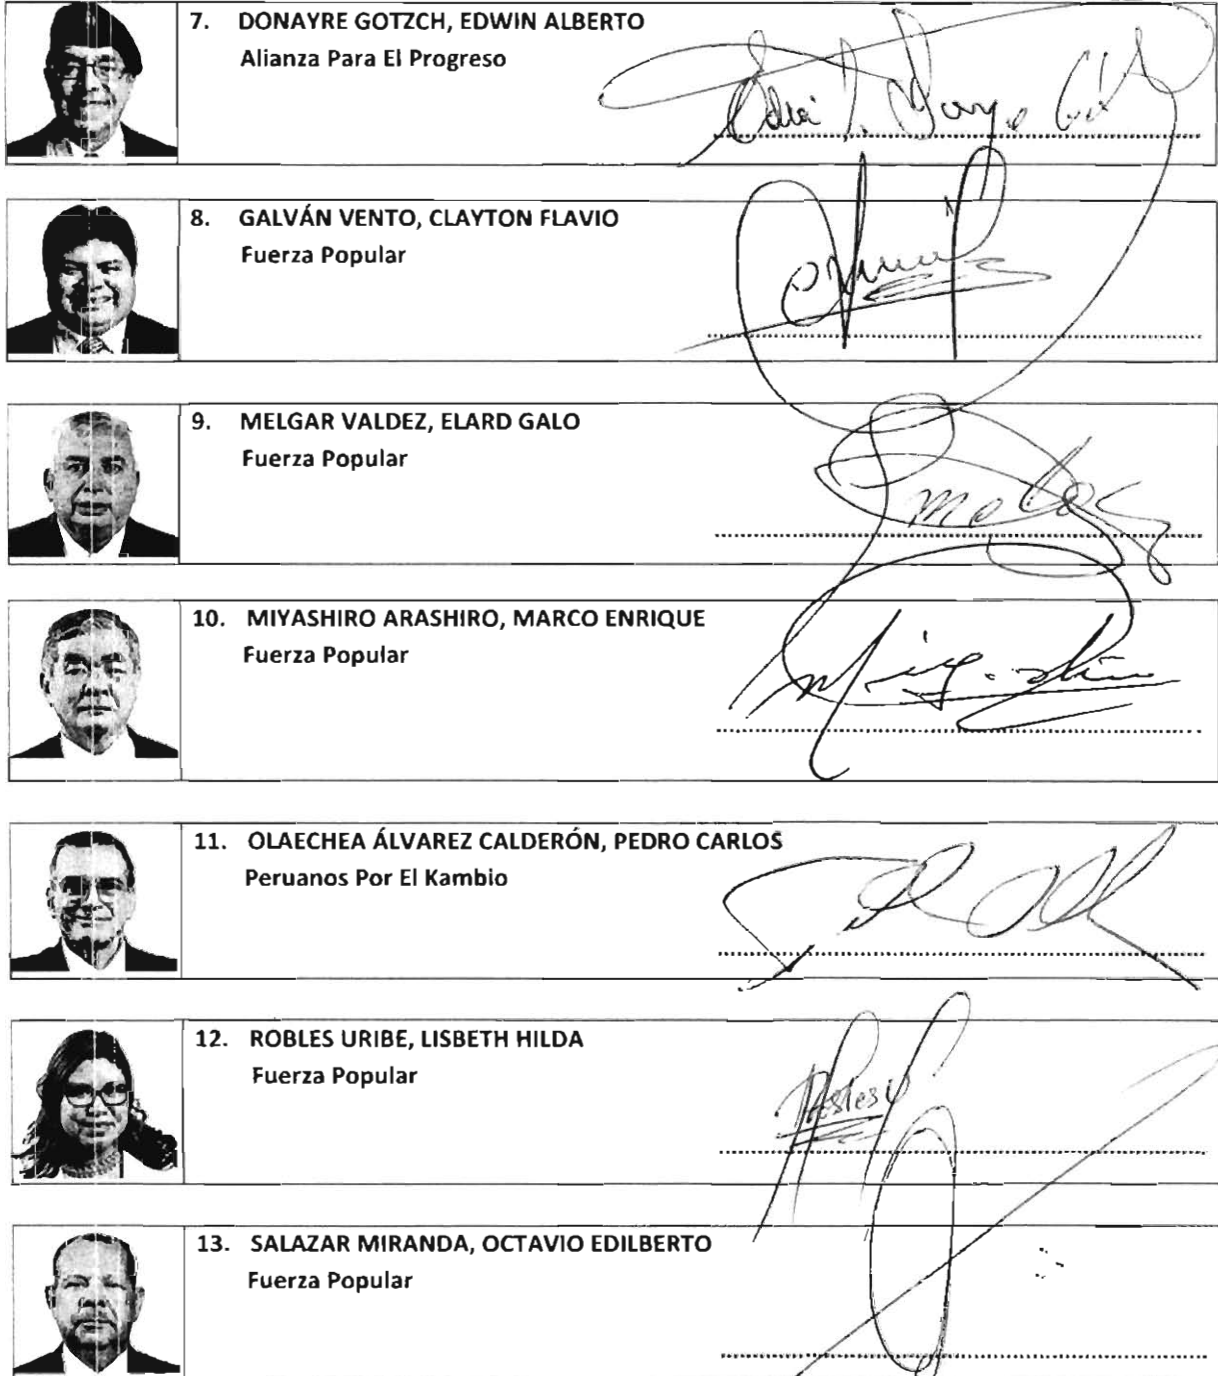 7. DONAYRE GOTZCH, EDWIN ALBERTO
Alianza Para El Progreso
8. GALVÁN VENTO, CLAYTON FLAVIO
Fuerza Popular
9. MELGAR VALDEZ, ELARD GALO
Fuerza Popular
10. MIYASHIRO ARASHIRO, MARCO ENRIQUE
Fuerza Popular
11. OLAECHEA ÁLVAREZ CALDERÓN, PEDRO CARLOS
Peruanos Por El Kambio
12. ROBLES URIBE, LISBETH HILDA
Fuerza Popular
13. SALAZAR MIRANDA, OCTAVIO EDILBERTO
Fuerza Popular